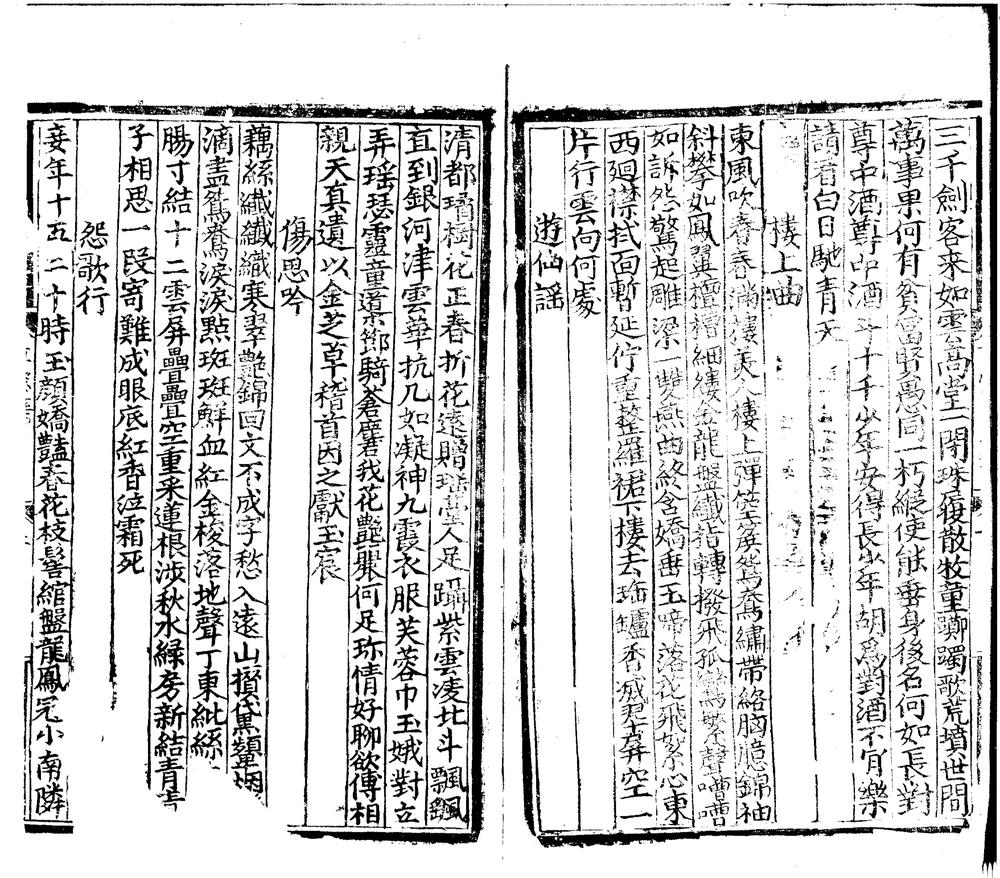 三千劍客来如雲髙堂一閉珠履散牧童躑躅歌荒墳世間
萬事果何有貧富賢愚同一朽縱使能垂身後名何如長對
尊中酒尊中酒斗十千少年安得長少年胡為對酒不肯樂
請看白日馳青天
樓上曲
東風吹春春滿樓美人樓上彈箜篌鴛鴦繡帶絡胸臆錦袖
斜攀如鳳翼檀槽細縷金龍盤纖指轉撥飛孤鸞繁聲嘈嘈
如訴怨驚起雕梁一雙燕曲終含嬌垂玉啼落花飛絮心東
西廻襟拭面暫延佇重整羅裙下樓去瑶鑪香滅翠屏空一
片行雲向何處
遊仙謡
清都琦樹花正春折花遠贈瑶臺人足躡紫雲凌北斗飄飄
直到銀河津雲華抗几如凝神九霞衣服芙蓉巾玉娥對立
弄瑶瑟靈童導崇鄉騎蒼麐我花艷裴何足珎情好聊欲傳相
親天真遺以金芝草稽首因之獻玉宸
傷思吟
藕絲纖纖織寒翠艷錦回文不成字愁入遠山攅黛顰烟
滴盡鴛鴦淚淚點斑斑鮮血紅金梭落地聲丁東紕絲
腸寸結十二雲屏疊疊空重采蓮根涉秋水緑房新結青
子相思一段寄難成眼底紅香泣霜死
怨歌行
妾年十五二十時玉顔嬌豔春花枝髻綰盤龍鳳冠小南隣